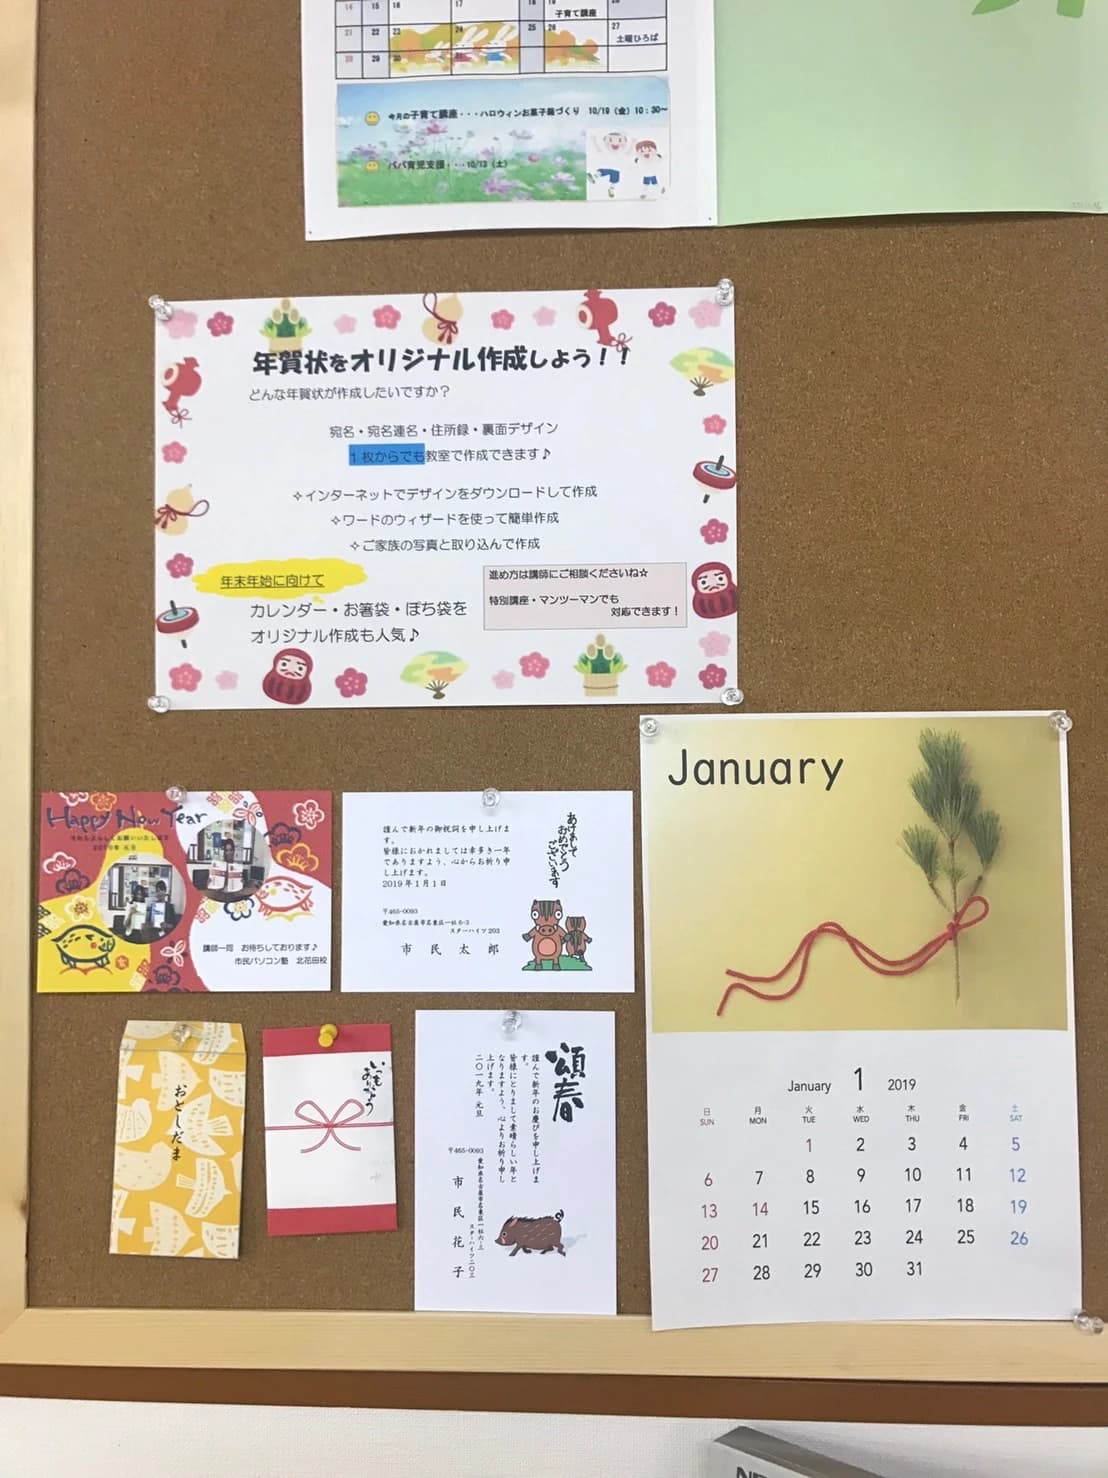 14 15 16 17 18 19 20
子育て講座
21 22 23 24 25 26 27
土曜ひろば
28 29 30 31
今月の子育て講座・・・ハロウィンお菓子袋づくり 10/19（金）10：30～
パパ育児支援・・・10/13（土）
年賀状をオリジナル作成しよう！！
どんな年賀状が作成したいですか？
宛名・宛名連名・住所録・裏面デザイン
1枚からでも教室で作成できます♪
✧インターネットでデザインをダウンロードして作成
✧ワードのウィザードを使って簡単作成
✧ご家族の写真と取り込んで作成
年末年始に向けて
カレンダー・お箸袋・ぽち袋を
オリジナル作成も人気♪
進め方は講師にご相談くださいね☆
特別講座・マンツーマンでも
対応できます！
Happy New Year
今年もよろしくお願いいたします
2019年 元旦
講師一同 お待ちしております♪
市民パソコン塾 北花田校
謹んで新年の御祝詞を申し上げま
す。
皆様におかれましては幸多き一年
でありますよう、心からお祈り申
し上げます。
2019年1月1日
〒465-0093
愛知県名古屋市名東区一社6-3
スターハイツ203
市民太郎
あけまして
おめでとう
ございます
おとしだま
いつも
ありがとう
頌春
謹んで新年のお慶びを申し上げま
す。
皆様にとりまして素晴らしい年と
なりますよう、心よりお祈り申し
上げます。
二〇一九年 元旦
〒465-0093
愛知県名古屋市名東区一社六-三
スターハイツ二〇三
市民花子
January
January 1 2019
日 月 火 水 木 金 土
SUN MON TUE WED THU FRI SAT
1 2 3 4 5
6 7 8 9 10 11 12
13 14 15 16 17 18 19
20 21 22 23 24 25 26
27 28 29 30 31